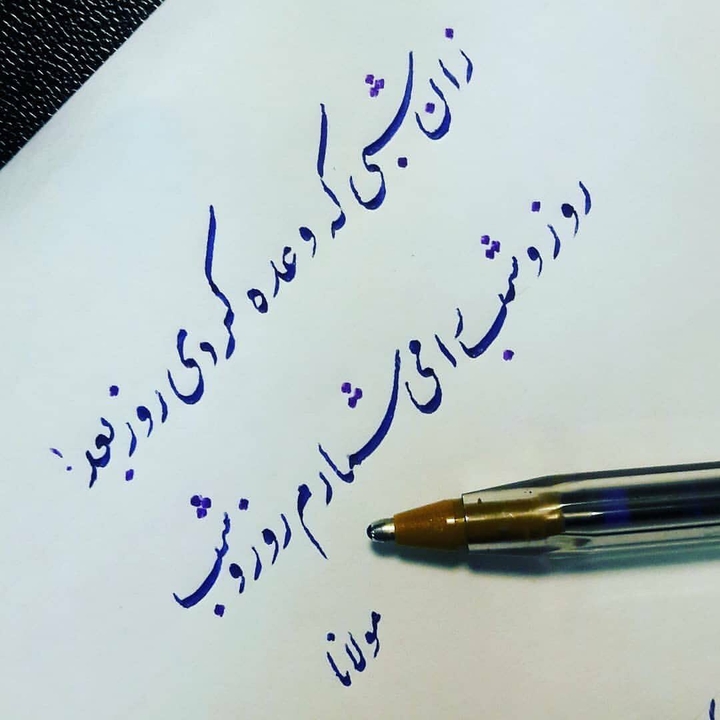 زان شبی که وعده کردی روز بعد!
روز و شب را می شمارم روز و شب
مولانا